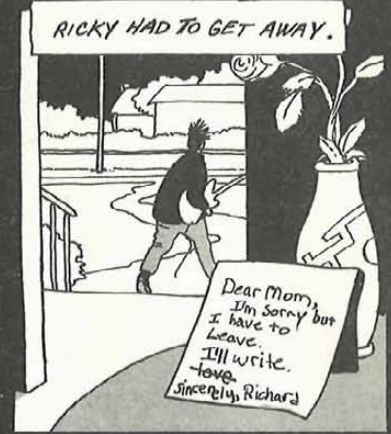 RICKY HAD TO GET AWAY.
Dear Mom,
I'm sorry but
I have to
Leave.
I'll write.
love
sincerely, Richard